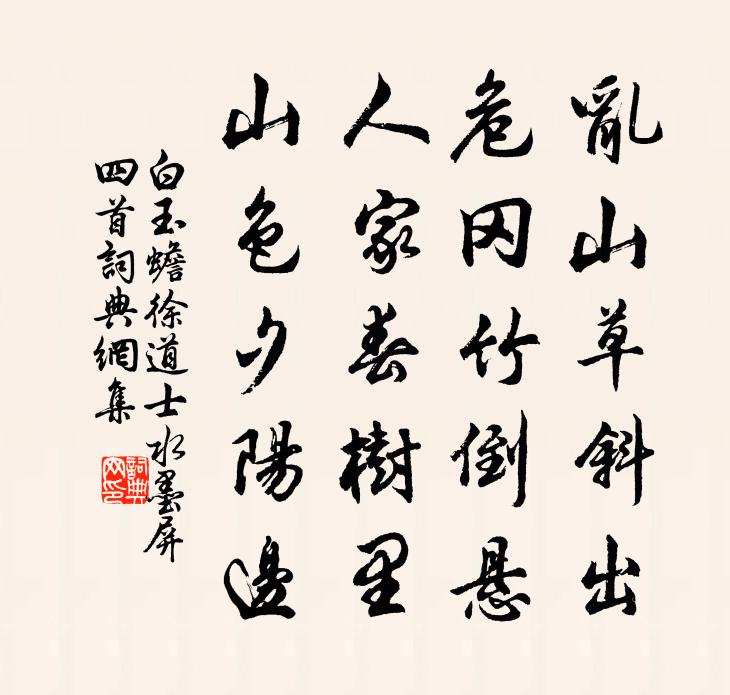 亂山草斜出
危冈竹倒悬
人家春樹里
山色夕陽邊
白玉蟾徐道士水墨屏
四首詞典網集
詞典
网印